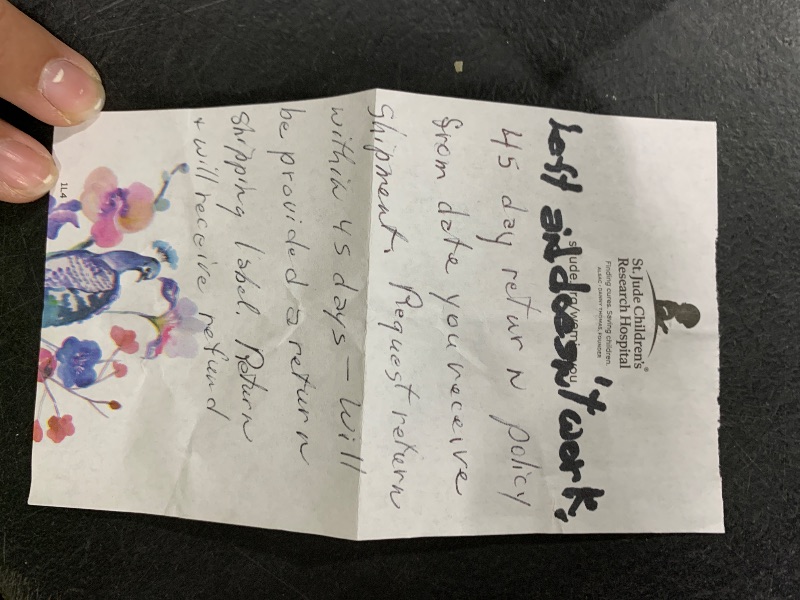 St. Jude Children's®
Research Hospital
ALSAC • DANNY THOMAS, FOUNDER
Finding cures. Saving children.
Left aid doesn't work.
45 day return policy
from date you receive
shipment. Request return
within 45 days – will
be provided a return
shipping label. Return
+ will receive refund
1L4